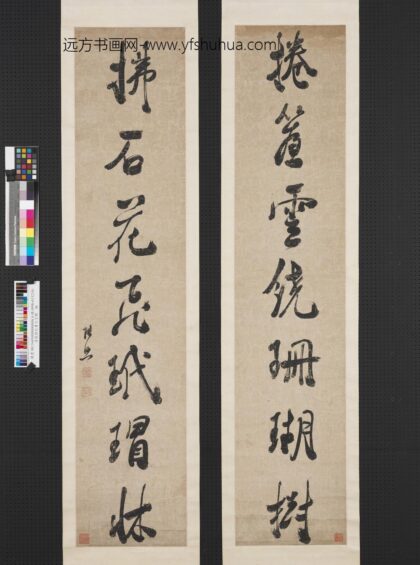 远方书画网-www.yfshuhua.com
捲雲繞珊瑚樹
拂石花飛玳瑁牀
張照